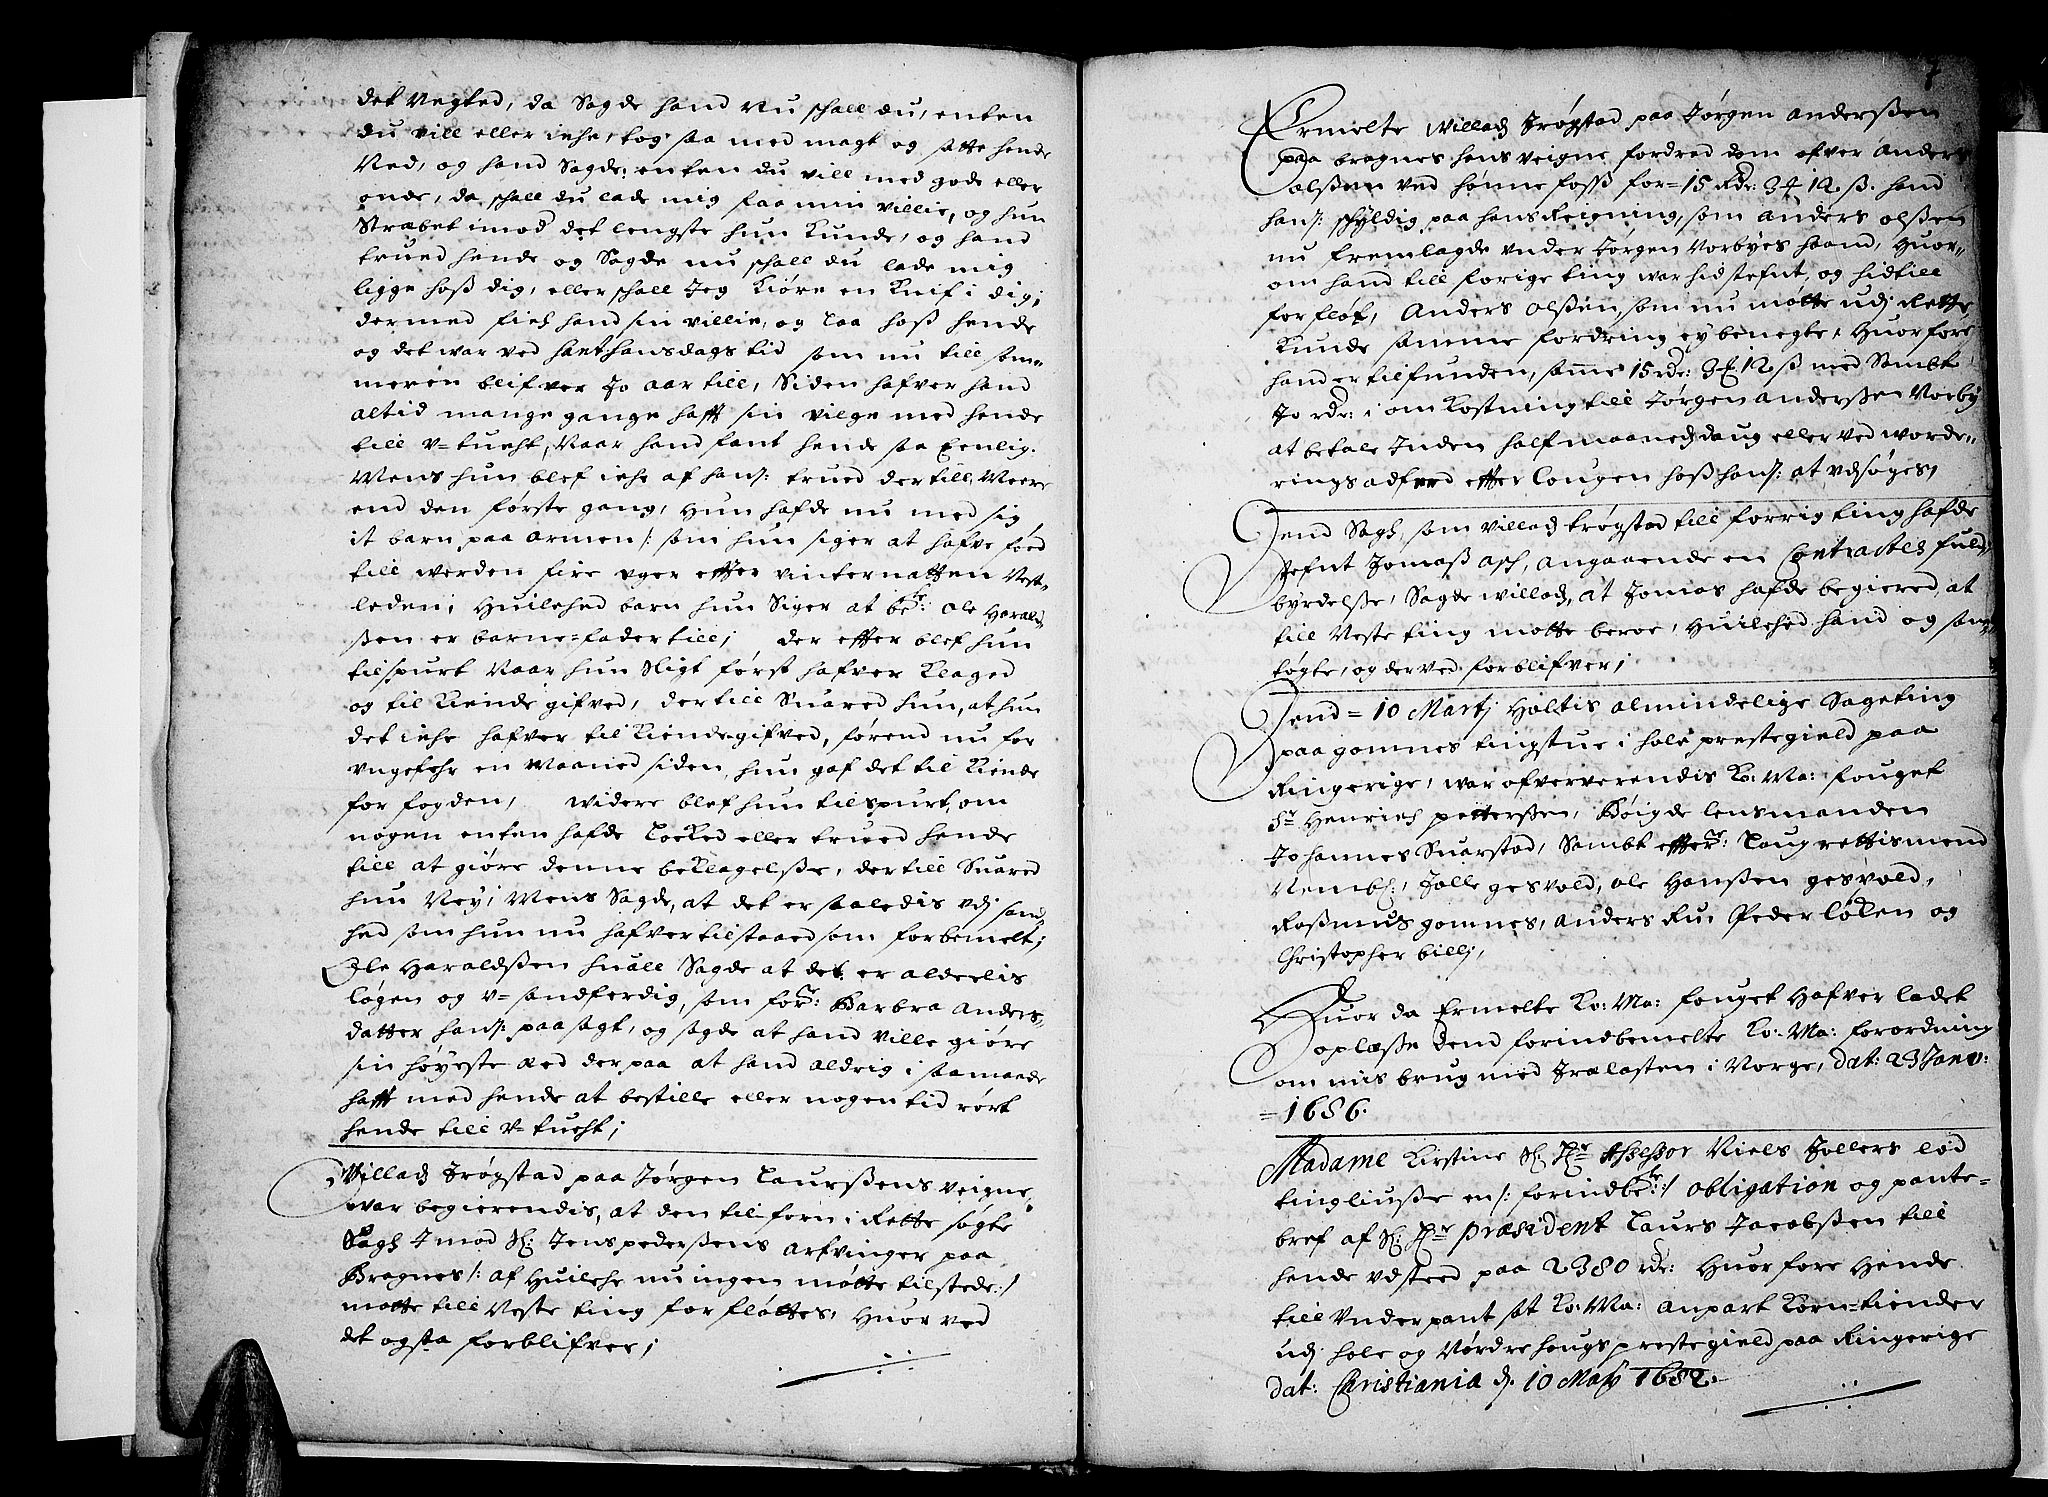 det Negted, da Sagde hand Nu schall du, enten
du vill eller iche, tog saa med magt og satte hende
Ned, og hand Sagde: enten du vill med gode eller
onde, da schall du lade mig faa min villie, og hun
Stræbet imod det lengste hun kunde, og hand
trued hende og Sagde nu schall du lade mig
ligge hoss dig, eller schall Jeg kiøre en Knif i dig;
dermed fich hand sin villie, og laa hoss hende
og det war ved sancthansdags tid som nu till som-
meren blifver Jo aar till, Siden hafver hand
altid mange gange hafft sin vilge med hende
till v-tucht, Naar hand fant hende saa Eenlig.
Mens hun blef iche af hans: trued der till, Meere
end den første gang, Hun hafde nu med sig
it barn paa armen /: som hun siger at hafve fød
till werden fire uger effter vinternatten Nest-
leden; Huilched barn hun Siger at ber: ole Harald-
ßen er barne-fader till; der effter blef hun
tilspurt Naar hun Sligt først hafver klaged
og til kiende gifved, der till Suared hun, at hun
det iche hafver til kiendegifved, førend nu for
ungefehr en Maaned siden, hun gaf det til kiende
for fogden, widere blef hun tilspurt, om
nogen enten hafde locked eller trued hende
till at giøre denne beklagelsse, der till Suared
hun Ney; Mens Sagde, at det er saaledis udj sand-
hed som hun nu hafver tilstaaed som forbemelt;
Ole Haraldßen huall Sagde at det er aldeelis
løgen og v-sandferdig, som for: Barbra Anders-
datter hans: paasagt, og sagde at hand ville giøre
sin høyeste æed der paa at hand aldrig i saamaade
hafft med hende at bestille eller nogen tid rørt
hende till v-tucht;
Villadz Trøgstad paa Jørgen Laurßens veigne,
war begierendis, at den tilforn i Rette søgte
Sagh Imod Sl: Jens pederßens arfvinger paa
Bragnes /: af Huilche nu ingen møtte tilstede :/
motte till Neste ting forfløttes, Huor ved
det ogsaa forblifver;
7
Ermelte Willadz Trøgstad paa Jørgen Anderßen
paa bragnes hans veigne fordred dom ofver Anders
olßen ved hønne foss for= 15 Rdr: 3 ₰ 12 ß: hand
hans: schyldig paa hans Reigning, som anders olßen
nu fremlagde under Jørgen Vorbyes haand, Huor-
om hand till forige ting war hid stefnt, og hidtill
forfløt, Anders Olßen, som nu møtte udj Rette,
kunde samme fordring ey benegte, Huorfore
hand er tilfunden, samme 15 rdr: 3 ₰ 12 ß med Sambt
Jo rdr: i omkostning till Jørgen anderßen Vorby
at betale Inden half maanedz daug eller ved worde-
rings adferd effter Lougen hoss hans: at udsøges,
Dend Sagh, som villadz trøgstad till forrig ting hafde
stefnt Tomass asch, angaaende en Contractes fuld-
byrdelsse, Sagde willadz, at Tomas hafde begiered, at
till Neste ting motte beroe, Huilched hand og sam-
tøgte, og der ved forblifver;
Dend = 10 Martj Holtis almindelige Sageting
paa gomnes tingstue i hole prestegield paa
Ringerige, war ofververendis Ko: Ma: fouget
Sr Henrich petterßen, Bøigde lensmanden
Johannes Suarstad, Sambt effter: laugrettismend
Nembl:, Tolle gesvold, ole Hanßen gesvold,
Rasmus gomnes, anders Ru, Peder løken og
Christopher billj,
Huor da Ermelte Ko: Ma: fouget Hafver ladet
oplæsse dend forindbemelte Ko: Ma: forordning
om misbrug med Trælasten i Norge, dat: 23 Janv:
= 1686.
Madame Kirstine Sl: Hr: Assessor Niels Tollers lod
tingliusse en /: forindber: :/ obligation og pante-
bref af Sl: Hr: Præsident Laurs Jacobßen till
hende udsteed paa 2380 rdr: Huorfore Hende
till Underpant sat Ko: Ma: anpart korn-tiender
udj hole og Nordrehougs prestegield paa Ringerige
dat: Christiania d. 10 Maij 1682.